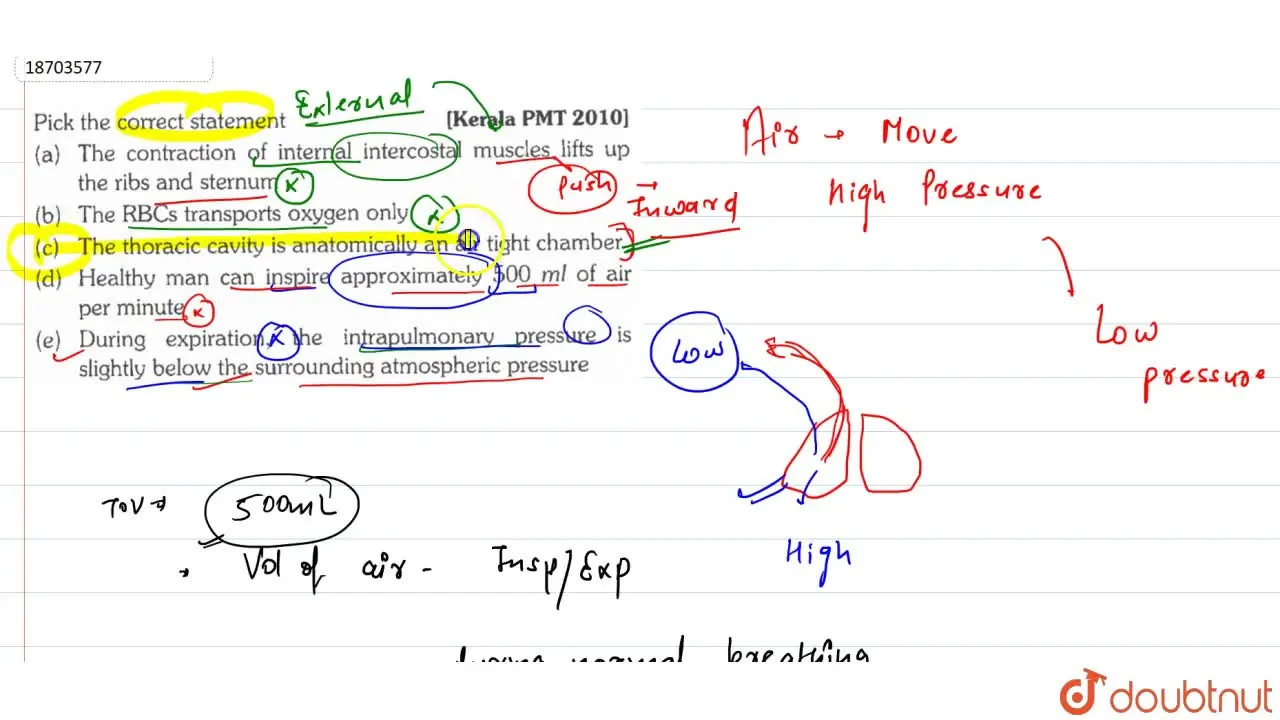 18703577
External
Pick the correct statement [Kerala PMT 2010]
(a) The contraction of internal intercostal muscles lifts up
the ribs and sternum x
Push
(b) The RBCs transports oxygen only x
Inward
(c) The thoracic cavity is anatomically an air tight chamber
(d) Healthy man can inspire approximately 500 ml of air
per minute x
(e) During expiration, x the intrapulmonary pressure is
slightly below the surrounding atmospheric pressure
Air → Move
High Pressure
Low
pressure
Low
High
500mL
Vol of air - Insp/Exp
during normal breathing
doubtnut